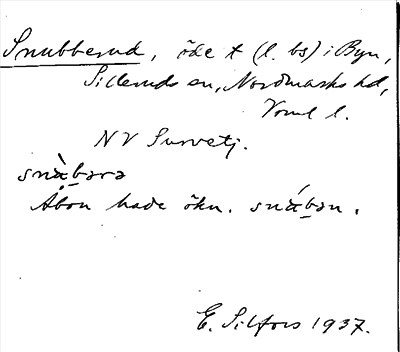 Snubberud, öde t (l. bs) i Byn,
Silleruds sn, Nordmarks hd,
Verml l.
NV Survetj.
snàbərə
Åbon hade ökn. snábən.
E. Silfors 1937.